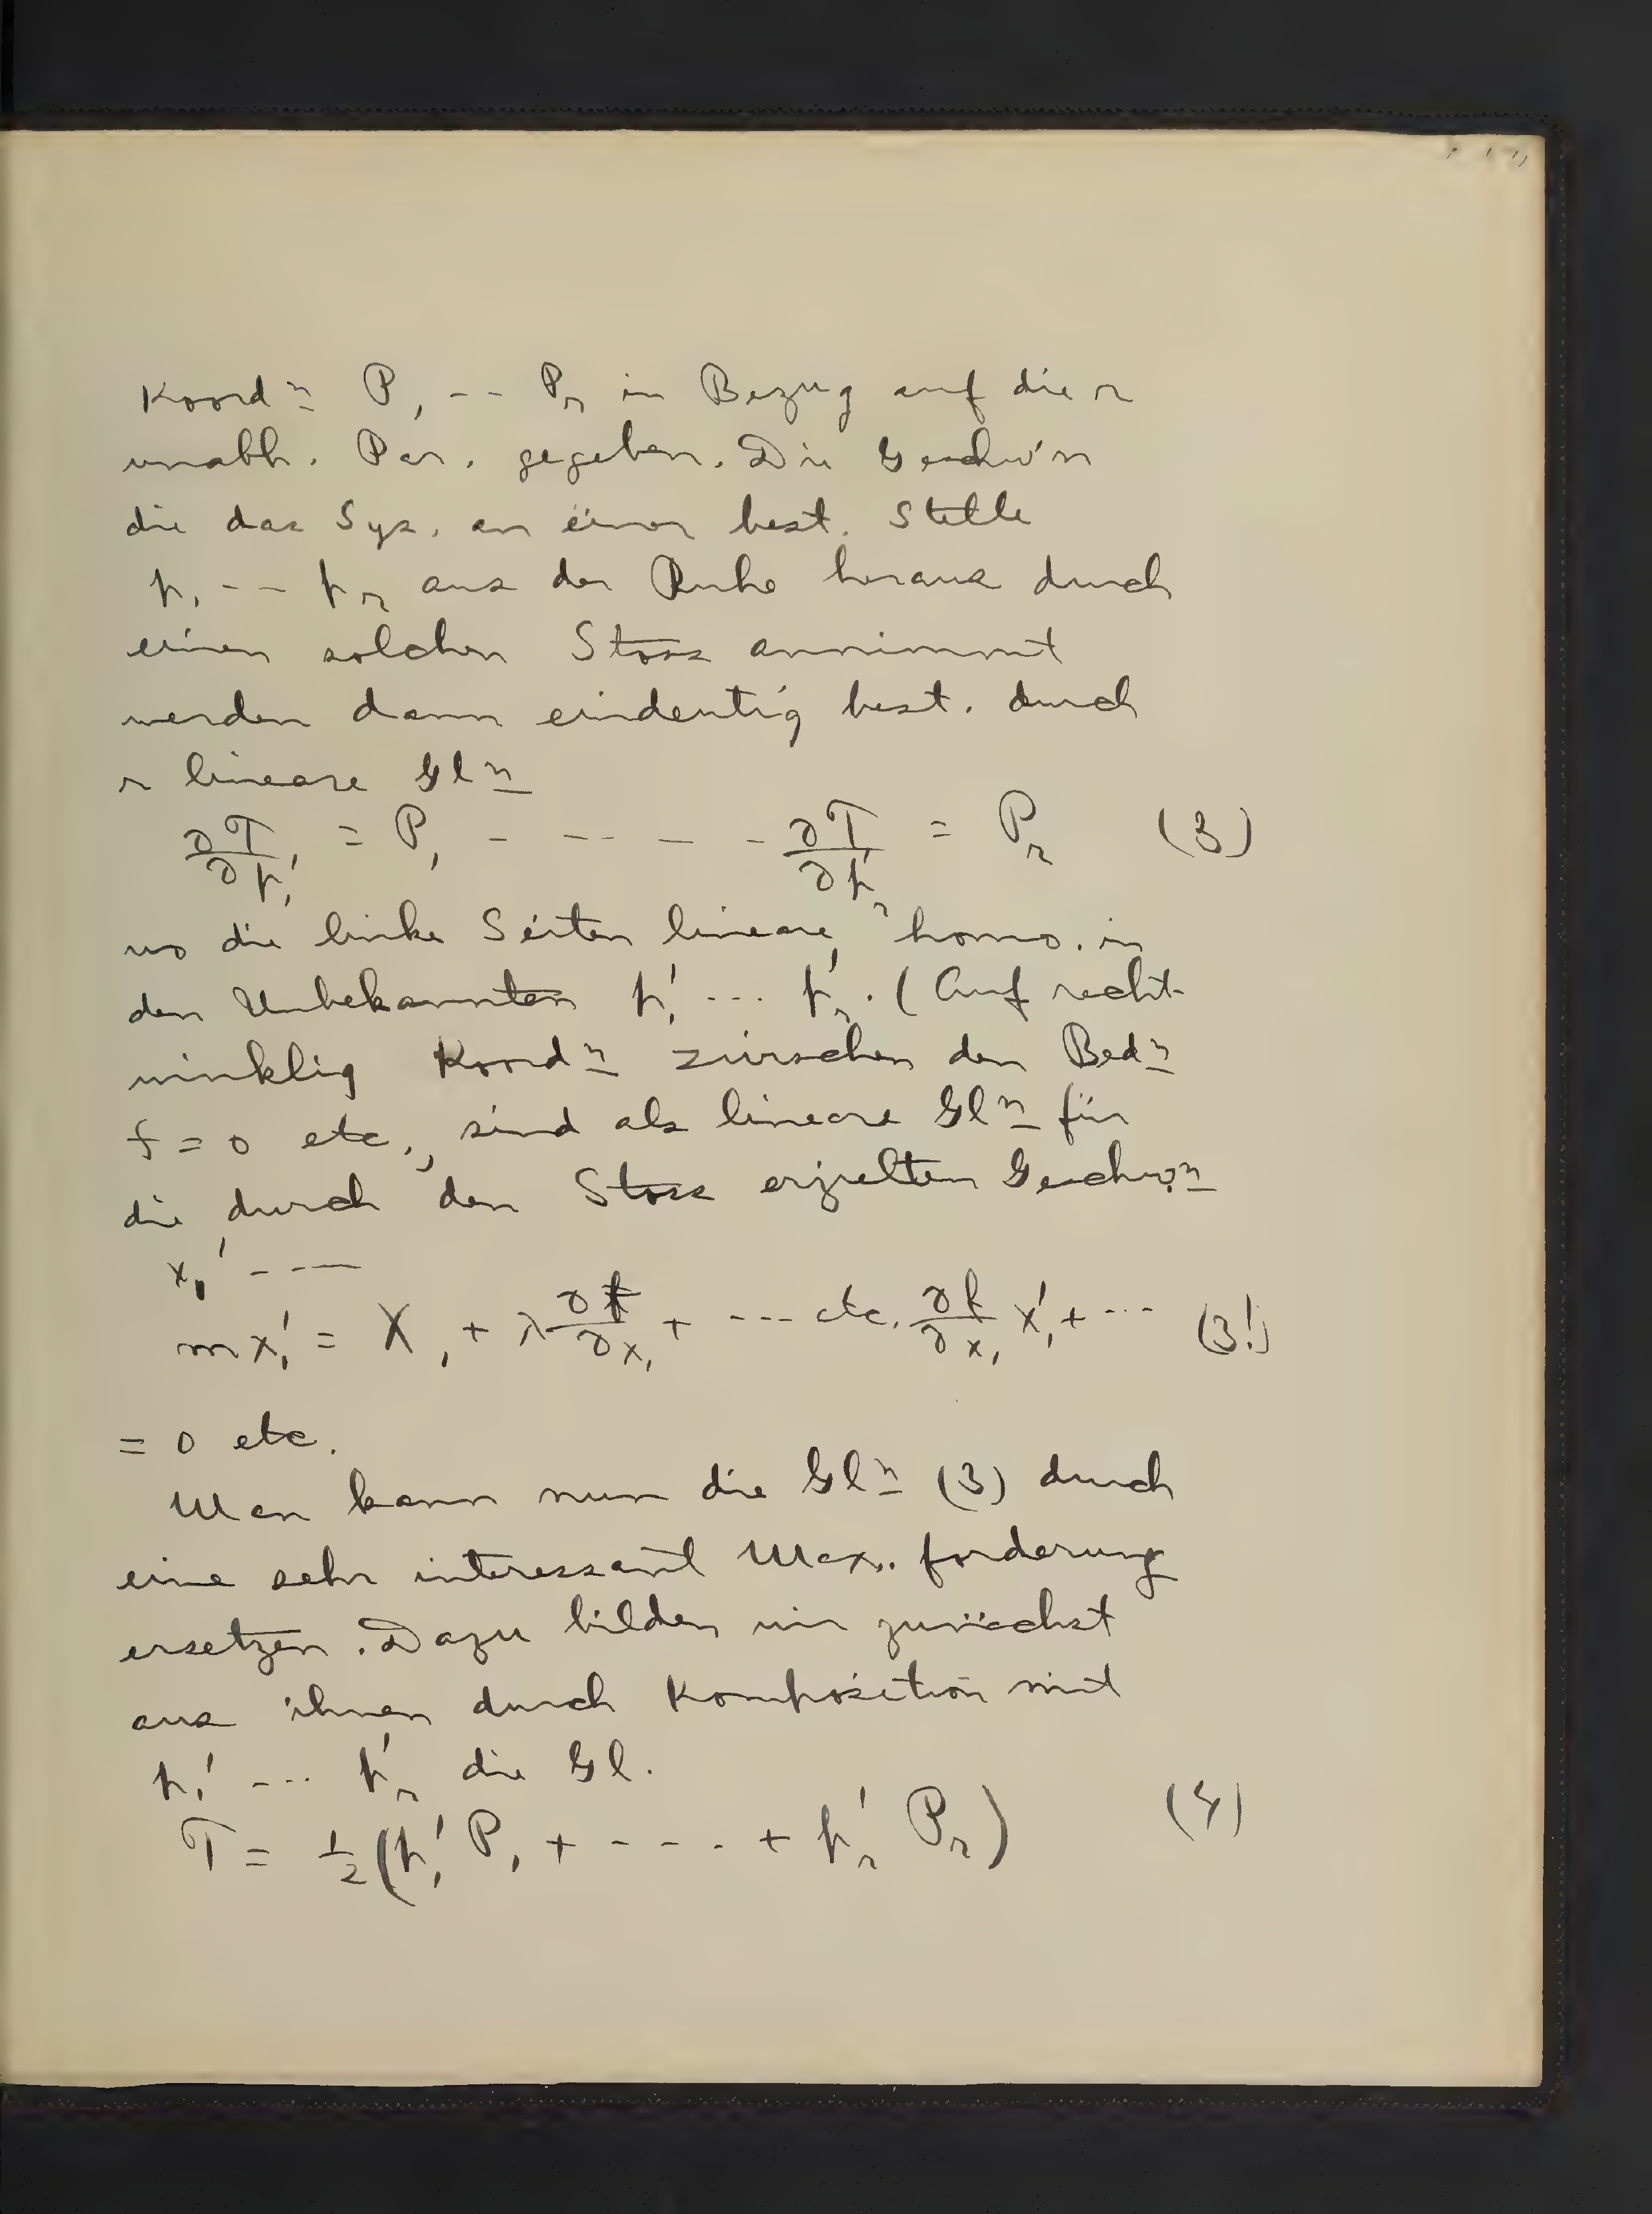 Koord⁼ⁿ P₁ -- Pᵣ in Bezug auf die r
unabh. Par. gegeben. Die Geschw'n
die das Sys. an einer best. Stelle
p₁ -- pᵣ aus der Ruhe heraus durch
einen solchen Stoss annimmt
werden dann eindeutig best. durch
r lineare Glⁿ
∂T/∂p₁' = P₁ - -- - - ∂T/∂pᵣ' = Pᵣ (3)
wo die linke Seiten lineare, homo. in
den Unbekannten p₁' ... pᵣ'. (Auf recht-
winklig Koordⁿ zwischen den Bedⁿ
f = 0 etc., sind als lineare Glⁿ für
die durch den Stoss erzielten Geschw.ⁿ
x₁' ---
mx₁' = X₁ + λ ∂f/∂x₁ + --- etc. ∂f/∂x₁ x₁' + ... (3!)
= 0 etc.
Man kann nun die Glⁿ (3) durch
eine sehr interessant Max. forderung
ersetzen. Dazu bilden wir zunächst
aus ihnen durch Komposition mit
p₁' ... pᵣ' die Gl.
T = ½(p₁' P₁ + - - - . + pᵣ' Pᵣ) (4)